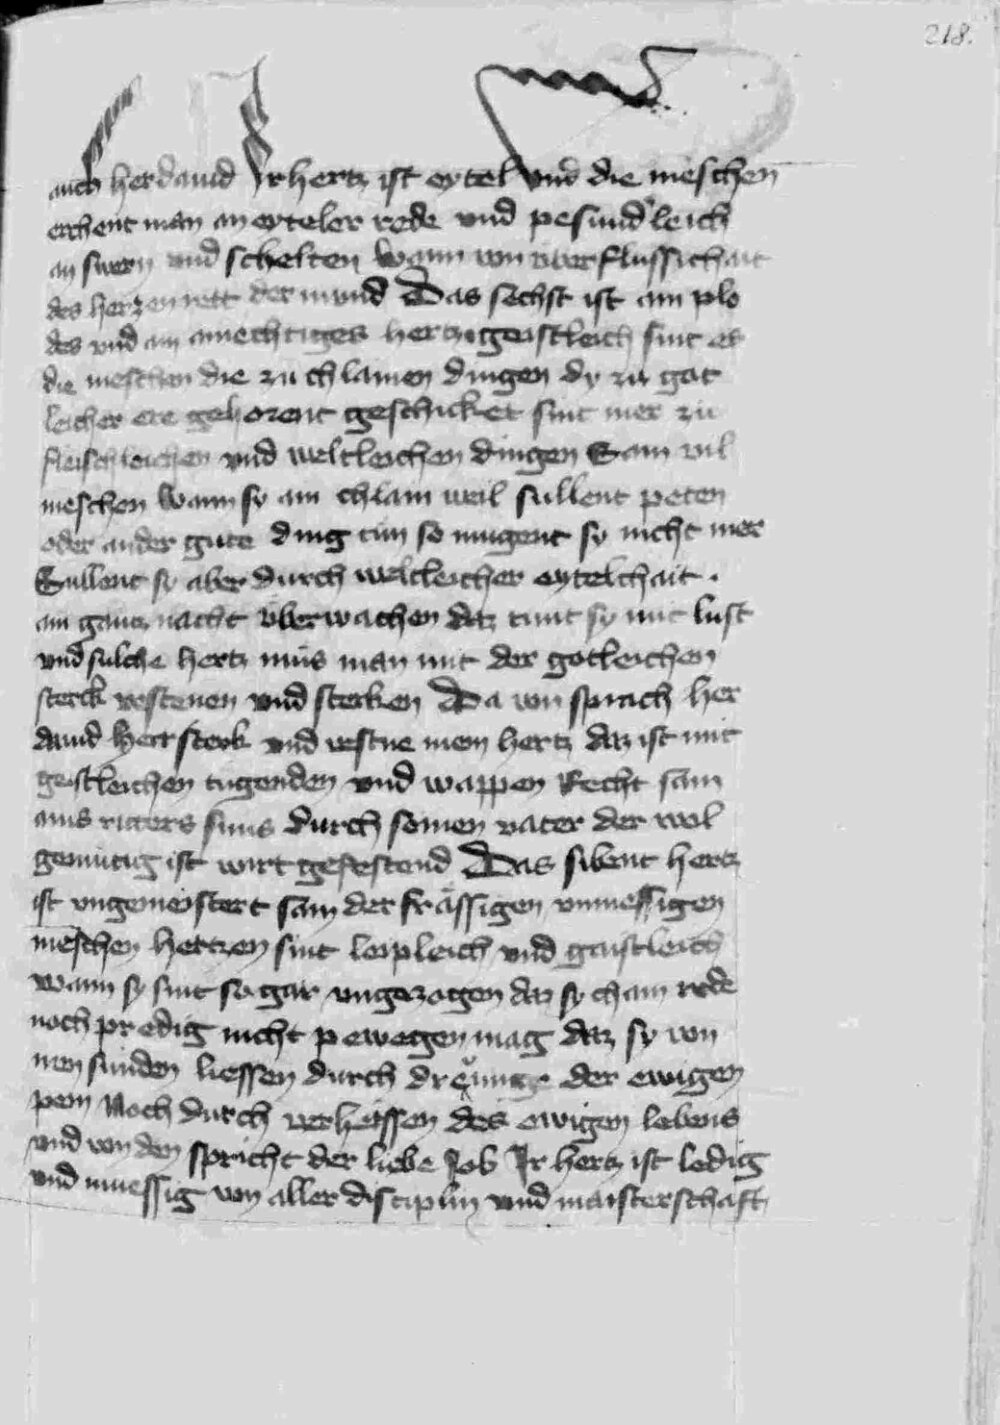 218.
auch her dauid Ir hertz ist eytel vnd die meschen
erchent man an eyteler rede vnd pesundleich
an swern vnd schelten wann von vberflussichait
des herzen rett der mund Das sechst ist ain plo
des vnd ain amechtiges hertz geistleich sint es
die meschen die zu chlainen dingen dy zu got
leicher ere gehorent geschicket sint mer zu
fleischleichen vnd weltleichen dingen Sam vil
meschen wann sy ain chlain weil sullent peten
oder ander gute ding tun so mugent sy nicht mer
Sullent sy aber durch weltleicher eytelchait .
ain gantz nacht vberwachen daz tunt sy mit lust
vnd sulche hertz mus man mit der gotleichen
sterck vestenen vnd sterken Da von sprach her
dauid herr sterk vnd vestne mein hertz daz ist mit
geistleichen tugenden vnd wappen Recht sam
ains ritters suns durch seinen vater der wol
gemutig ist wirt gefestend Das sibent hertz
ist vngemeistert sam der frässigen vnmessigen
meschen hertzen sint leipleich vnd gaistleich
wann sy sint so gar vngezogen daz sy chain rede
noch predig nicht pewegen mag daz sy von
iren sunden liessen durch der ewigen
pein Noch durch verheissen des ewigen lebens
vnd von den spricht der liebe Job Ir hertz ist ledig
vnd muessig von aller disciplin vnd maisterschaft